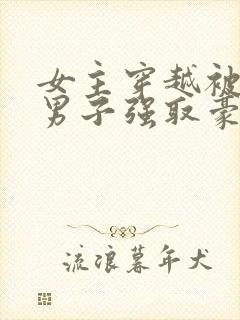 女主穿越被
男子强取豪
流浪暮年犬